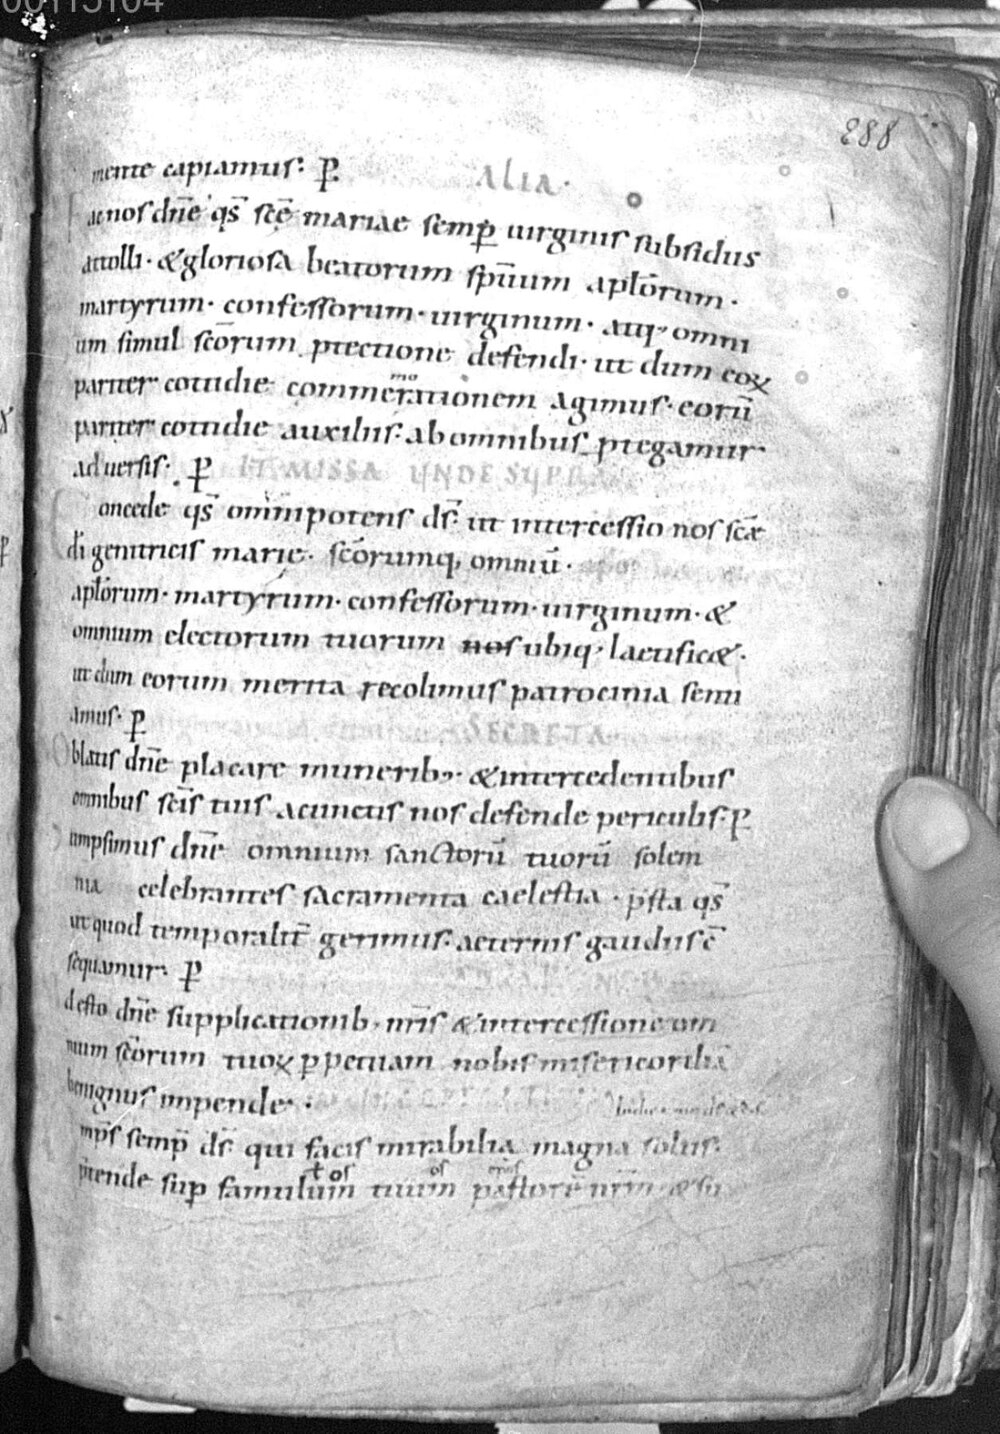 288
mente capiamus: p̄. ALIA.
ac nos dn̄e qs̄ scē mariae semp̄ uirginis subsidiis
attolli· &gloriosa beatorum sp̄uum aplōrum·
martyrum· confessorum· uirginum· atq; omni
um simul scōrum ꝓtectione defendi· ut dum eoꝝ
pariter cottidie commēmorationem agimus· eorū
pariter cottidie auxiliis· ab omnibus ꝓtegamur
aduersis· p̄ IT MISSA UNDE SUPRA
oncede qs̄ omnipotens ds̄· ut intercessio nos scæ
dī genitricis marie· scōrumq; omniū·
aplōrum· martyrum· confessorum· uirginum· &
omnium electorum tuorum nos ubiq; laetificæ·
ut dum eorum merita recolimus patrocinia senti
amus· p̄ SECRETA
blatis dn̄e placare munerib;· &intercedentibus
omnibus scīs tuis acunctis nos defende periculis· p̄
umpsimus dn̄e omnium sanctorū tuorū solem
nia celebrantes sacramenta caelestia· p̄sta qs̄
ut quod temporalit̄ gerimus· aeternis gaudiis c̄
sequamur· p̄
desto dn̄e supplicationib; nr̄is &intercessione om
nium scōrum tuoꝝ ꝑpetuam nobis misericordiā
benignus impende·
mp̄s semp̄ ds̄ qui facis mirabilia magna solus·
p̄tende sup̄ famulum ł os tuum os pastorē nr̄m &su